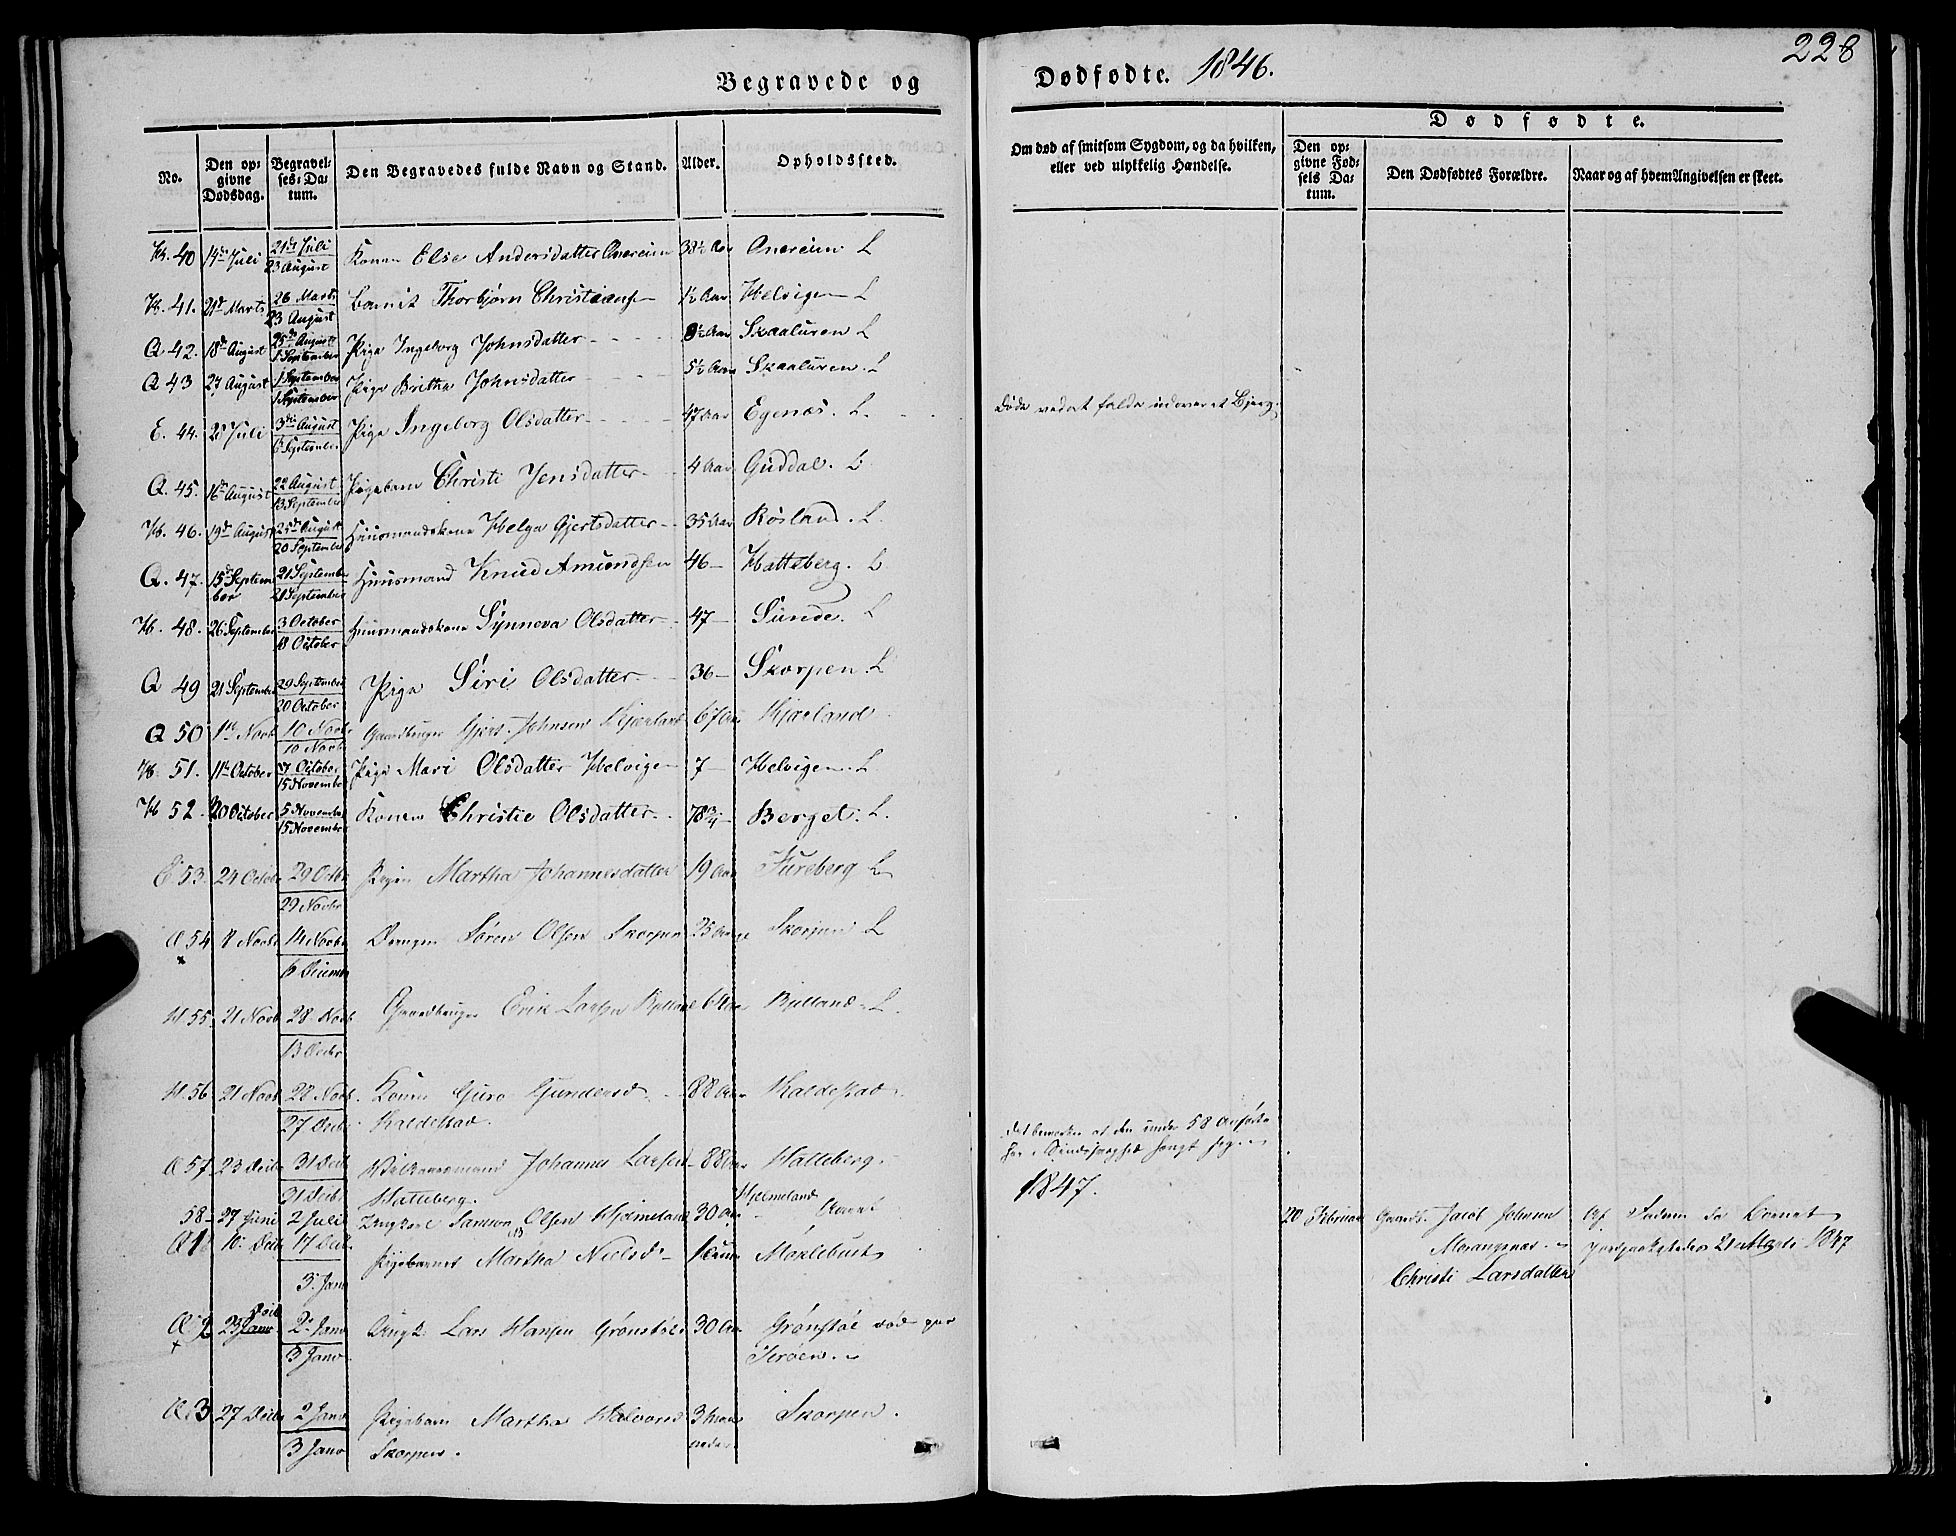 228
Begravede og Dødfødte. 1846.
No.
Den opgivne Dødsdag.
Begravelses-Datum.
Den Begravedes fulde Navn og Stand.
Alder.
Opholdssted.
Om død af smitsom Sygdom, og da hvilken, eller ved ulykkelig Hændelse.
Dødfødte.
Den opgivne Fødsels Datum.
Den Dødfødtes Forældre.
Naar og af hvem Angivelsen er skeet.
40 14de Juli 21de Juli 23 August Konen Else Andersdatter Anereim 38½ Aar Anereim L
41. 21de Marts 26 Marts 23 August Barnet Thorbjørn Christians 1½ Aar Helvigen L
Q 42. 18de August 25de August 1 September Pige Ingeborg Johnsdatter 8½ Aar Skaaluren L
Q 43 27 August 1 September 1 September Pige Britha Johnsdatter 5½ Aar Skaaluren L
E. 44. 28 Juli 3die August 6 September Pige Ingeborg Olsdatter 47 Aar Egenæs. L. Døde ved at falde udover et Bjerg.
Q. 45. 16de August 22 August 13 September Pigebarn Christi Jensdatter 4 Aar Guddal. L
46. 19de August 25de August 20 September Huusmandskone Helga Gjertsdatter 35 Aar Røsland. L.
Q. 47. 15de September 21 September 21 September Huusmand Knud Amundsen 46 Hatteberg. L
48. 26 September 3 October 18 October Huusmandskone Synneva Olsdatter 47 Sunde. L
Q 49 21 September 29 September 20 October Pige Siri Olsdatter 36 Skorpen L
Q 50 1ste Novb 10 Novbr 10 Novbr Gaardbruger Gjert Johnsen Kjærland 67 Aar Kjærland
51. 11te October 7 October 15 November Pige Mari Olsdatter Helvigen 7 Helvigen. L
52. 20 October 5 November 15 November Konen Christie Olsdatter 78¾ Berget. L.
53. 24 Octobr 29 Octbr 29 Novbr Pigen Martha Johannesdatter 19 Aar Fureberg L
54 8 Novbr 14 Novbr 6 Decemb Drengen Søren Olsen Skorpen 25 Aar Skorpen L
55. 21 Novb 28 Novb. 13 Decbr Gaardbruger Erik Larsen Bjelland Bjelland. L.
56. 21 Novb 28 Novb. 27 Decbr. Konen Guro Gundersd Kaldestad. 88 Aar Kaldestad
57. 23 Decbr 31 Decb 31 Decbr Johannes Larsen Hatteberg. 88 Aar Hatteberg.
Det bemærkes at den under 58 anførte har i Sindssvaghed hængt sig.
58 27 Juni 2 Juli Ungkarl Samson Olsen Hjelmeland 30 Aar Hjelmeland
1847.
1 10. Decbr 17 Decbr 3. Janv Pigebarnet Martha Nielsd Møklebust
20 Februar Gaardb. Jacob Johnsen Morangsnæs. Christi Larsdatter
Af Faderen da Barnet 21 Marti 1847
2 23 Decb 2 Janv 3 Janv. Ungk. Lars Hansen Grønstøl 30 Aar Grønstøl død paa
3 27 Decbr 2 Janv 3 Janv Pigebarn Martha Halvorsd Skorpen. 3 Maaneder Skorpen.